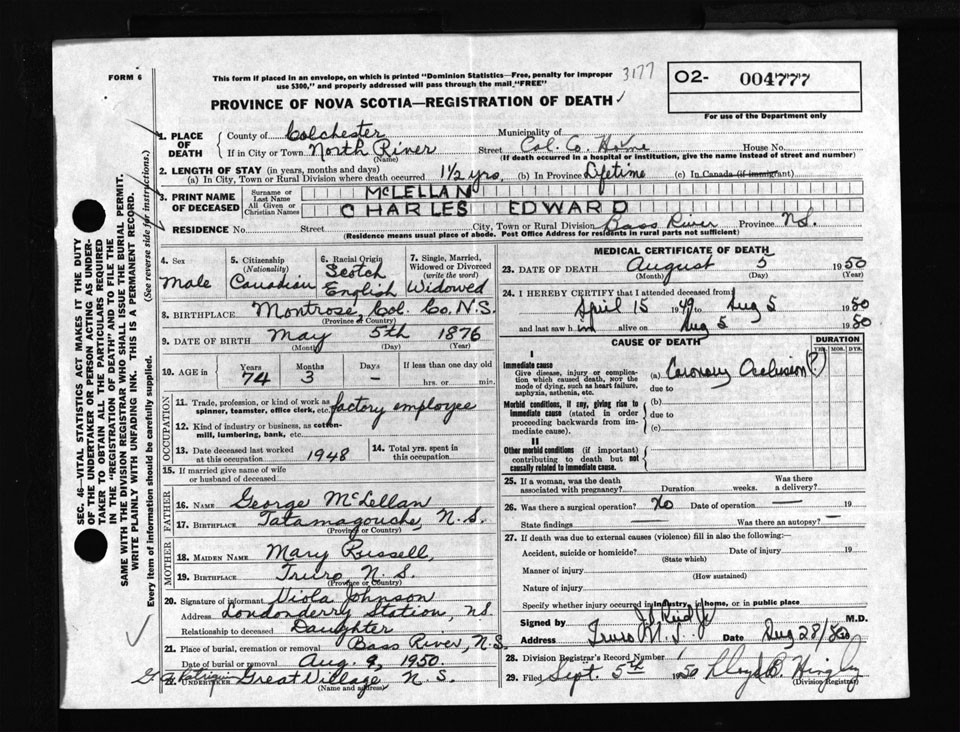 FORM 6
This form if placed in an envelope, on which is printed "Dominion Statistics—Free, penalty for improper
use $300," and properly addressed will pass through the mail "FREE"
3177
O2- 004777
For use of the Department only
PROVINCE OF NOVA SCOTIA—REGISTRATION OF DEATH
1. PLACE OF DEATH
County of Colchester
Municipality of
If in City or Town North River Street Col. Co. Home House No.
(Name) (If death occurred in a hospital or institution, give the name instead of street and number)
2. LENGTH OF STAY (in years, months and days)
(a) In City, Town or Rural Division where death occurred 1½ yrs. (b) In Province Lifetime (c) In Canada (if immigrant)
3. PRINT NAME OF DECEASED
Surname or Last Name McLELLAN
All Given or Christian Names CHARLES EDWARD
RESIDENCE No. Street City, Town or Rural Division Bass River Province N.S.
(Residence means usual place of abode. Post Office Address for residents in rural parts not sufficient)
4. Sex
Male
5. Citizenship (Nationality)
Canadian
6. Racial Origin
Scotch English
7. Single, Married, Widowed or Divorced (write the word)
Widowed
8. BIRTHPLACE Montrose, Col. Co. N.S.
(Province or Country)
9. DATE OF BIRTH May 5th 1876
(Month) (Day) (Year)
10. AGE in Years 74 Months 3 Days – If less than one day old
hrs. or min.
OCCUPATION
11. Trade, profession, or kind of work as spinner, teamster, office clerk, etc. factory employee
12. Kind of industry or business, as cotton-mill, lumbering, bank, etc.
13. Date deceased last worked at this occupation 1948
14. Total yrs. spent in this occupation
15. If married give name of wife or husband of deceased
FATHER
16. NAME George McLellan
17. BIRTHPLACE Tatamagouche, N.S.
(Province or Country)
MOTHER
18. MAIDEN NAME Mary Russell,
19. BIRTHPLACE Truro, N.S.
(Province or Country)
20. Signature of informant Viola Johnson
Address Londonderry Station, N.S.
Relationship to deceased Daughter
21. Place of burial, cremation or removal Bass River, N.S.
Date of burial or removal Aug. 9, 1950.
22. UNDERTAKER Great Village N.S.
(Name and address)
MEDICAL CERTIFICATE OF DEATH
23. DATE OF DEATH August 5 1950
(Month) (Day) (Year)
24. I HEREBY CERTIFY that I attended deceased from
April 15 1949 to Aug 5 1950
and last saw him alive on Aug 5 1950
CAUSE OF DEATH
DURATION
YRS. MOS. DYS.
I
Immediate cause
Give disease, injury or complication which caused death, NOT the mode of dying, such as heart failure, asphyxia, asthenia, etc.
(a) Coronary Occlusion (?)
due to
Morbid conditions, if any, giving rise to immediate cause (stated in order proceeding backwards from immediate cause).
(b)
due to
(c)
II
Other morbid conditions (if important) contributing to death but not causally related to immediate cause.
25. If a woman, was the death associated with pregnancy? Duration weeks. Was there a delivery?
26. Was there a surgical operation? No Date of operation — 19
State findings — Was there an autopsy? —
27. If death was due to external causes (violence) fill in also the following:—
Accident, suicide or homicide? Date of injury 19
(State which)
Manner of injury
(How sustained)
Nature of injury
Specify whether injury occurred in industry, in home, or in public place
Signed by M.D.
Address Truro N.S. Date Aug 28/50
28. Division Registrar's Record Number
29. Filed Sept. 5th 1950
(Division Registrar)
SEC. 46—VITAL STATISTICS ACT MAKES IT THE DUTY
OF THE UNDERTAKER OR PERSON ACTING AS UNDERTAKER
TO OBTAIN ALL THE PARTICULARS REQUIRED
IN THE "REGISTRATION OF DEATH" AND TO FILE THE
SAME WITH THE DIVISION REGISTRAR WHO SHALL ISSUE THE BURIAL PERMIT.
WRITE PLAINLY WITH UNFADING INK. THIS IS A PERMANENT RECORD.
Every item of information should be carefully supplied.
(See reverse side for instructions.)